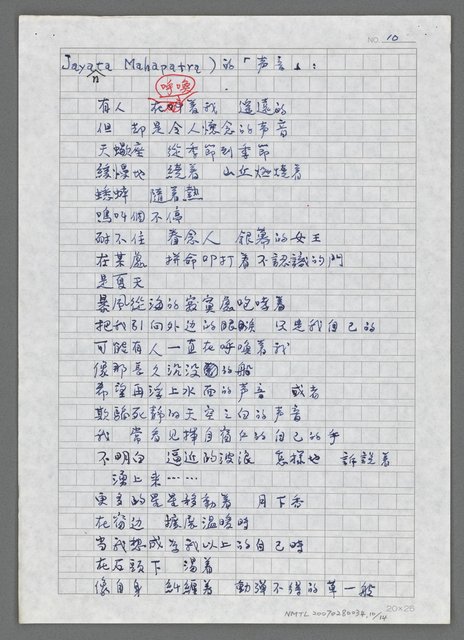 NO. 10
Jayanta Mahapatra）的「声音」：
呼喚
有人 在 着我 遥遠的
但 却是令人懷念的声音
天蠍座 從季節到季節
緩慢地 繞着 山丘燃燒着
蟋蟀 隨着熱
鳴叫個不停
耐不住 眷念人 銀幕的女王
在某處 拼命叩打着不認識的門
是夏天
暴風從海的寂寞處咆哮着
把我引向外边的眼 只是我自己的
可能有人一直在呼喚着我
像那長久沉没的船
希望再浮上水面的声音 或者
欺騙死静的天空之白的声音
我 常看見揮自 的自己的手
不明白 逼近的波浪 怎樣地 訴說着
湧上来……
更多的星星移動着 月下香
在窗边 溫暖時
當我想成為我以上的自己時
在石頭下 濕着
像自身 糾纏着 動彈不得的草一般
20×25
NMTL 20070280034, 10/14